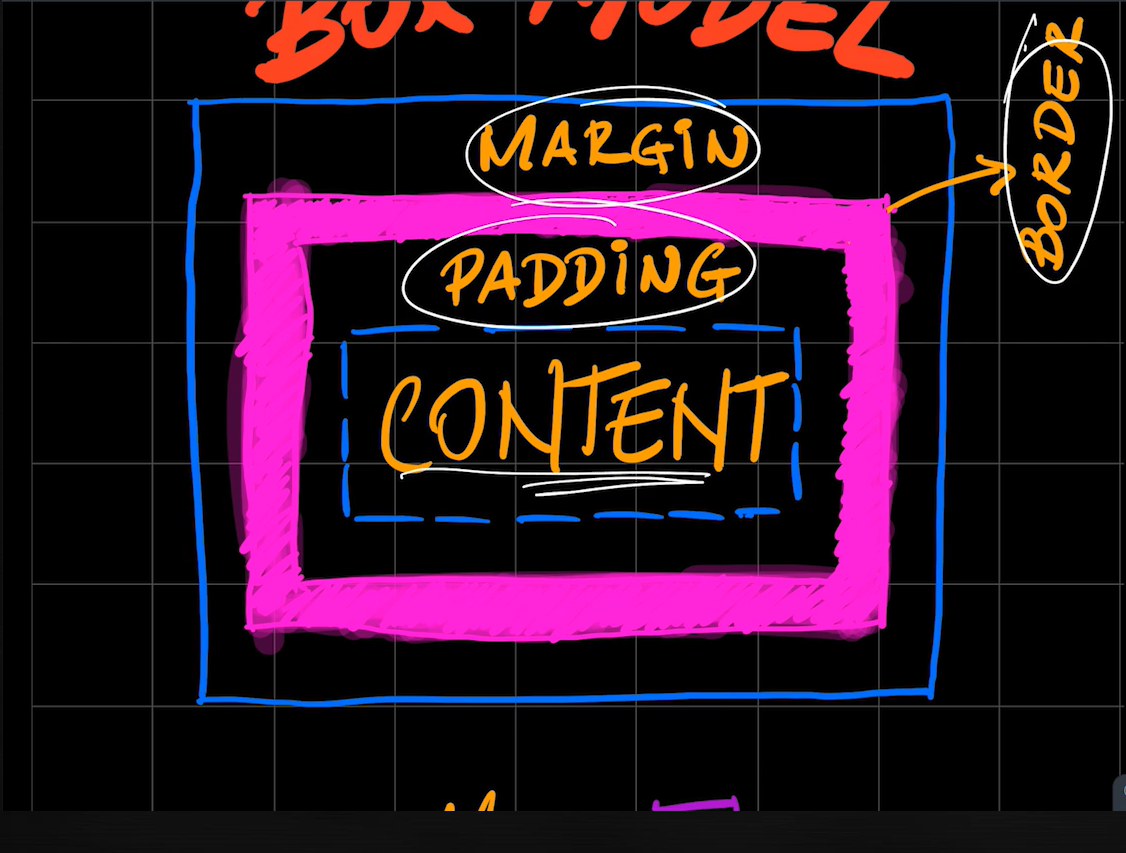 BOX MODEL
MARGIN
BORDER
PADDING
CONTENT